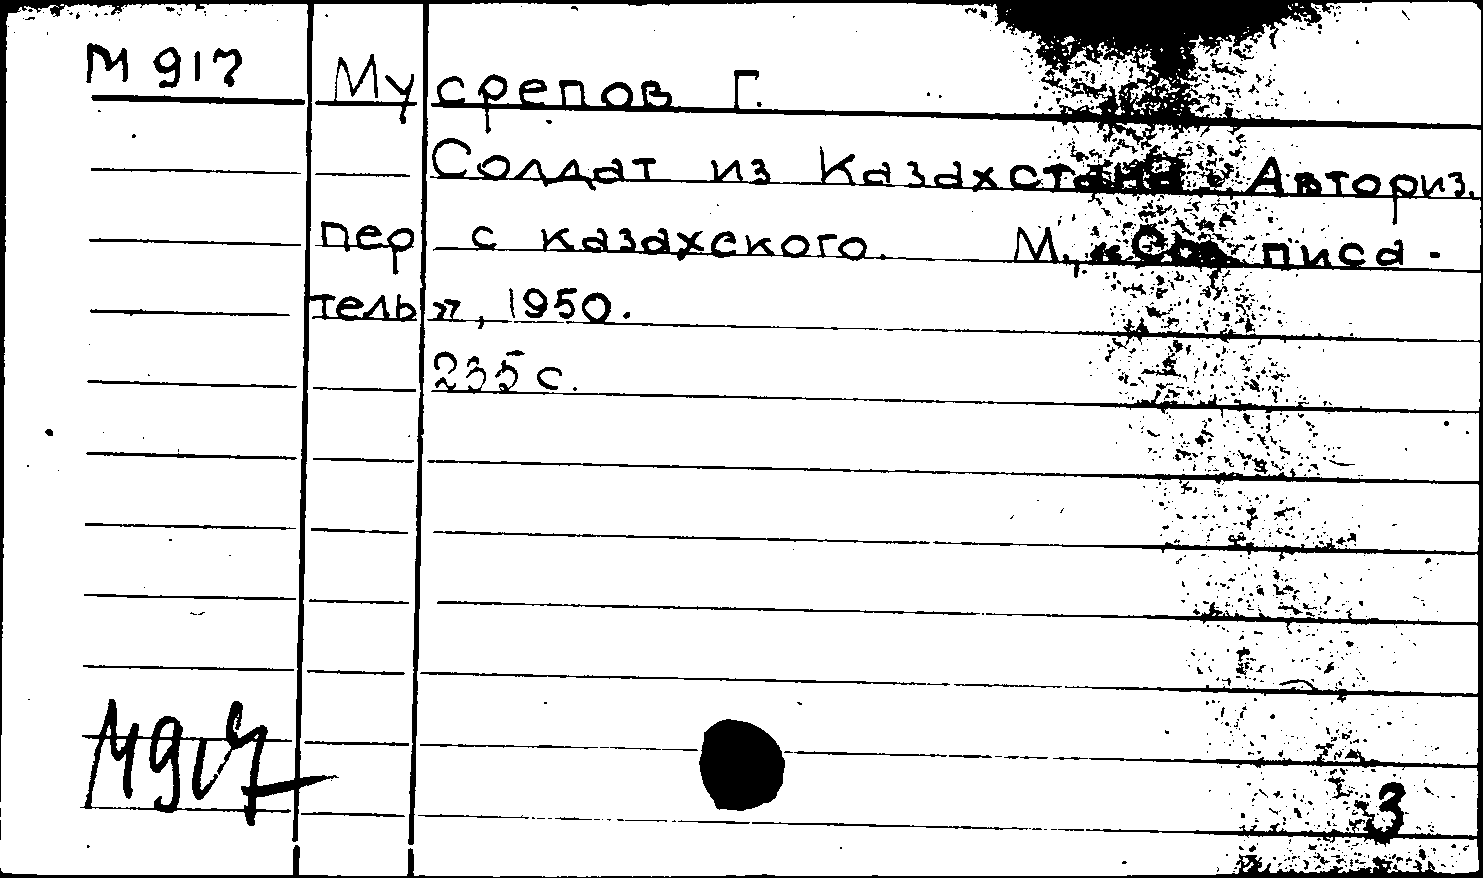 М 917 Мусрепов Г.
Солдат из Казахстана. Авториз.
пер с казахского. М., «Сов писа-
тель», 1950.
235 с.
М917
3